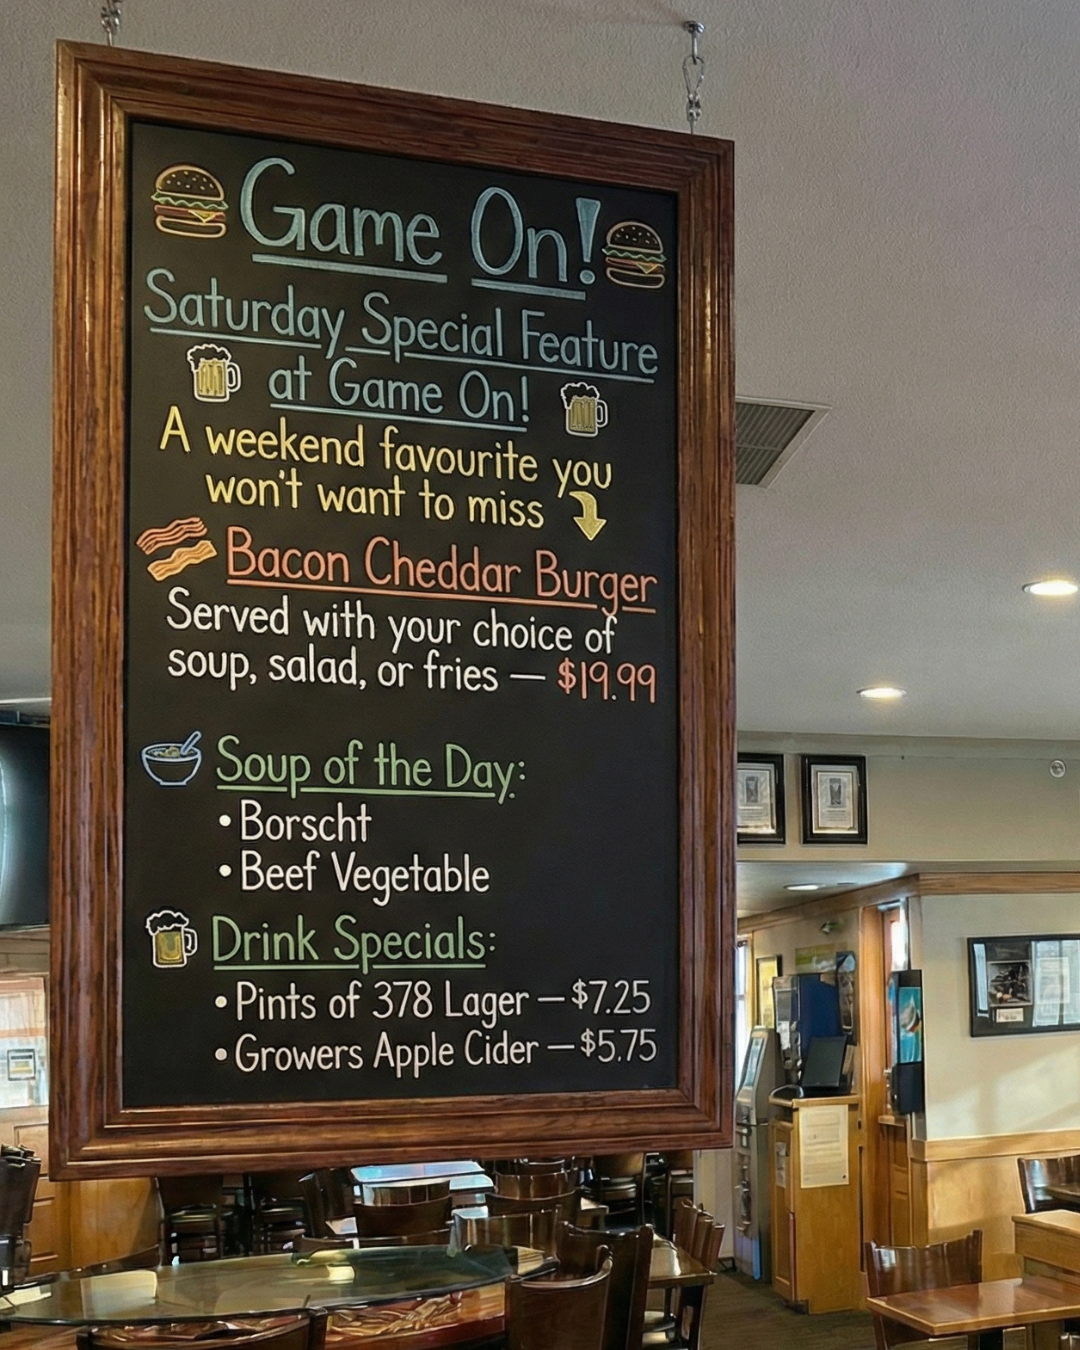 Game On!
Saturday Special Feature
at Game On!
A weekend favourite you
won't want to miss
Bacon Cheddar Burger
Served with your choice of
soup, salad, or fries — $19.99
Soup of the Day:
• Borscht
• Beef Vegetable
Drink Specials:
• Pints of 378 Lager — $7.25
• Growers Apple Cider — $5.75